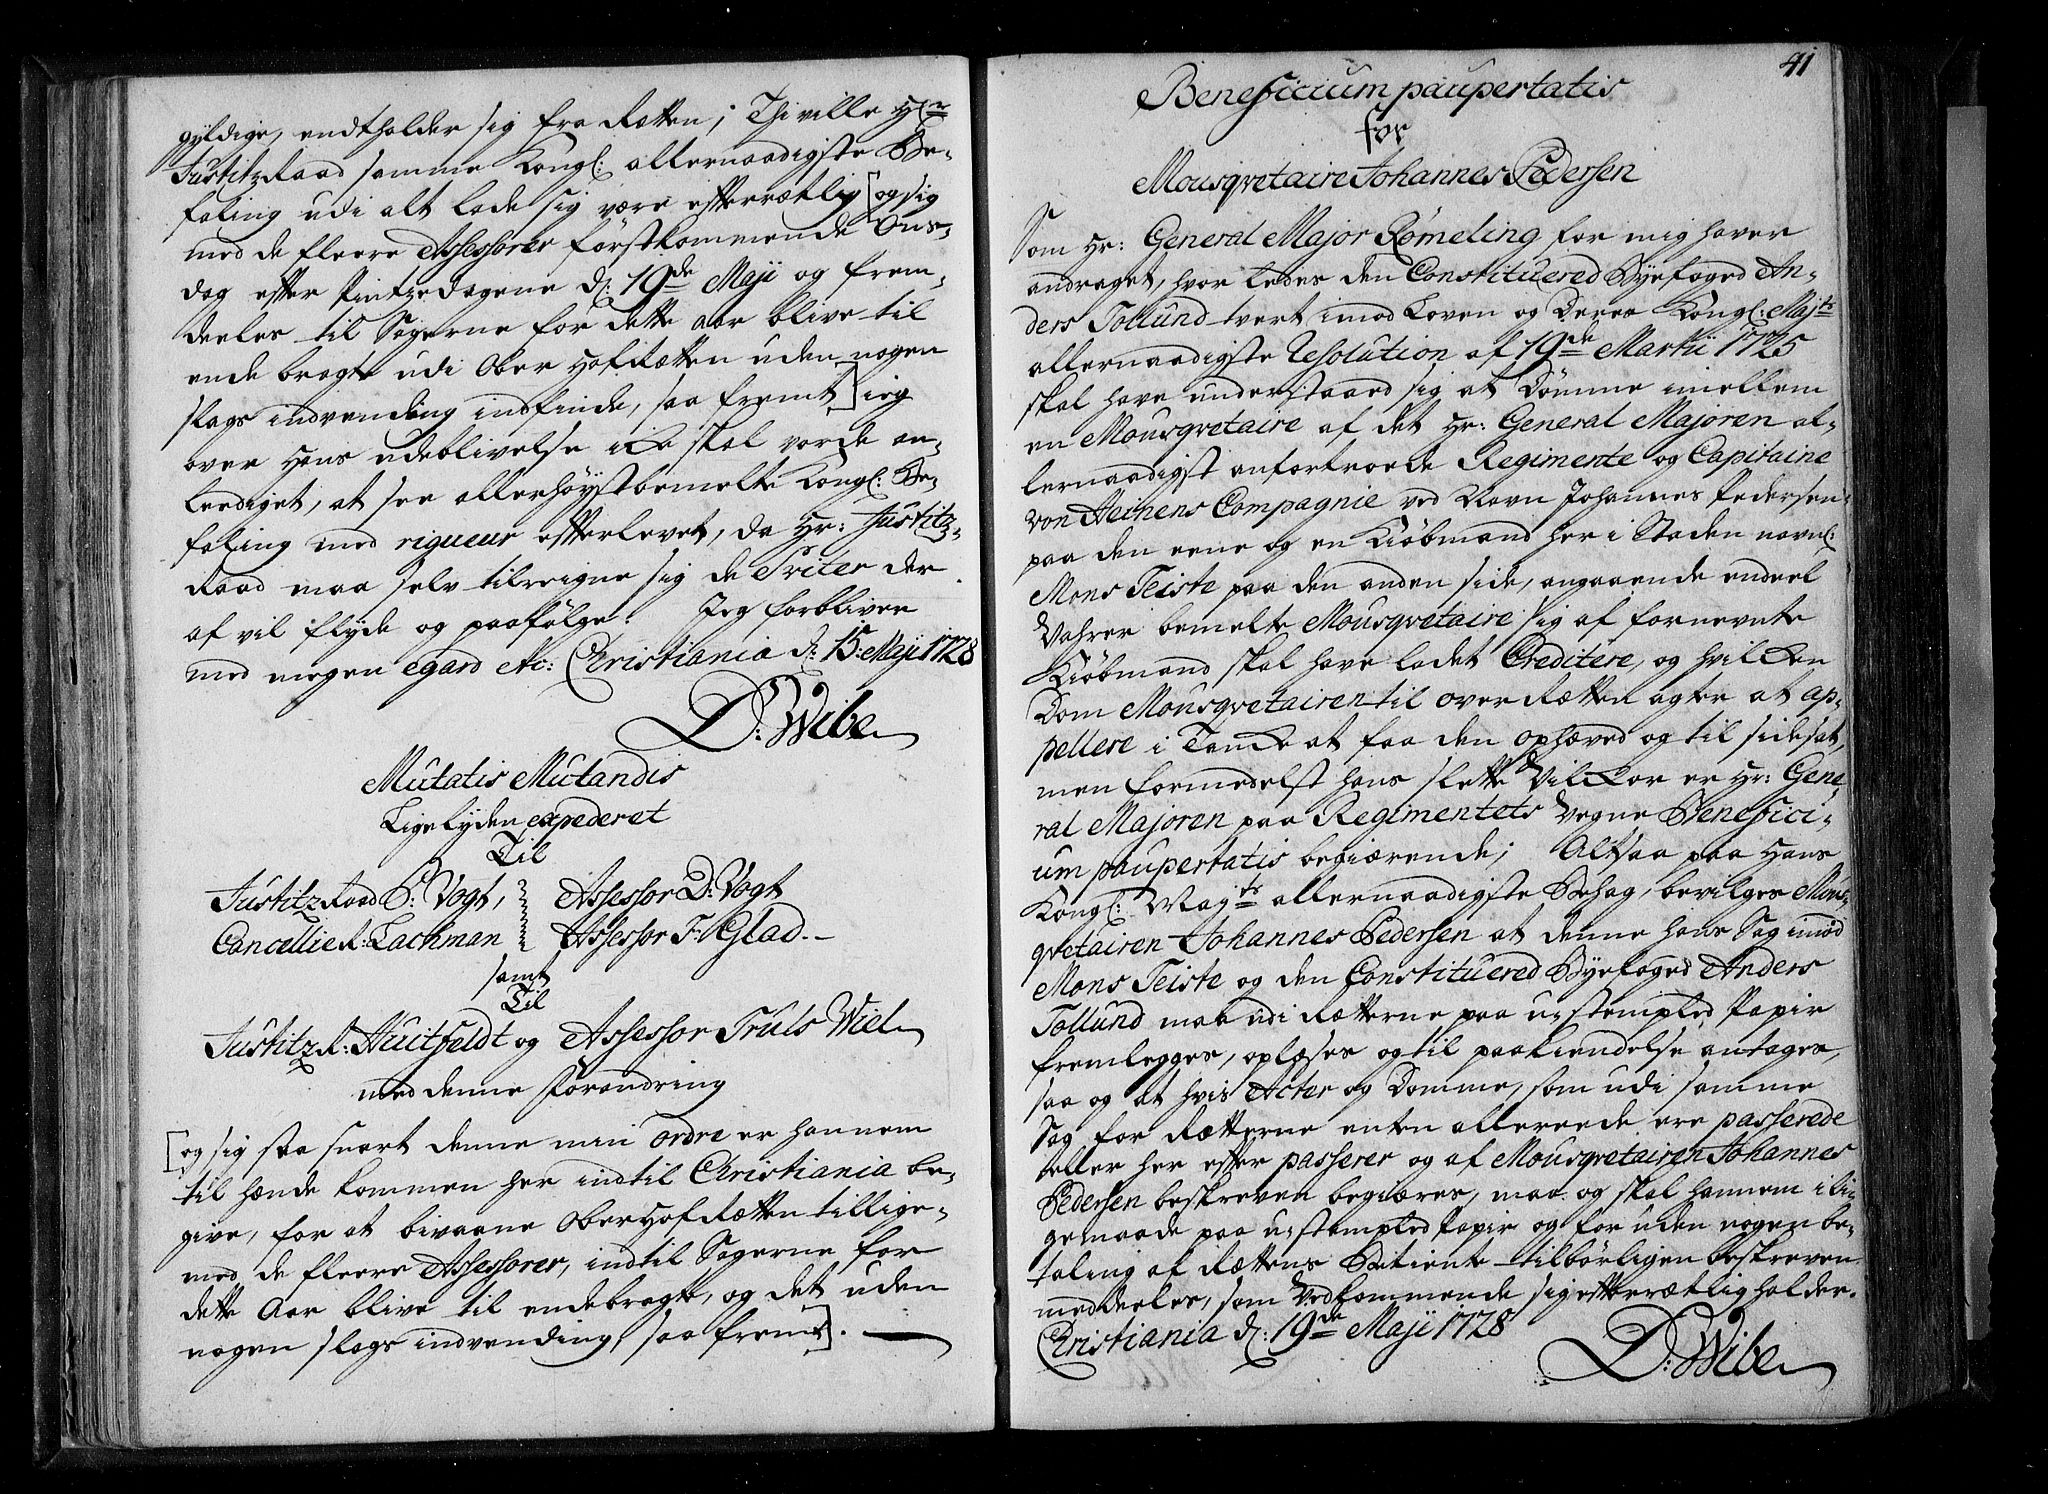 gyldige, endtholder sig fra Retten; Thi ville Hr
JustitzRaad samme Kongl: allernaadigste Be-
faling udi alt lade sig være efterrætlig [og sig
med de fleere Assessorer förstkommende Ons-
dag efter Pintzedagene d: 19de Maji og frem-
deeles til Sagerne for dette aar blive til
ende bragte udi Ober HofRetten uden nogen
slags indvending indfinde, saa fremt] ieg
over Hans udeblivelse icke skal vorde an-
leediget, at see allerhøystbemelte Kongl: Be-
faling med rigueur efterlevet, da Hr: Justitz-
Raad maa selv tilreigne sig de Sviter der
af vil flyde og paafölge. Jeg forbliver
med megen egard etc: Christiania d: 15: Maji 1728
D: Wibe
Mutatis Mutandis
Ligelyden expederet
Til
JustitzRaad S: Vogt, Assessor D: Vogt
CancellieR: Lachman Assessor F: Glad.-
samt
Til
JustitzR: Huitfeldt og Assessor Truls Wiel
med denne Forandring
[og sig saa snart denne min ordre er hannem
til hænde kommen her indtil Christiania be-
give, for at bivaane OberHofRetten tillige-
med de fleere Assessorer, indtil Sagerne for
dette Aar blive til endebragte, og det uden
nogen slags indvending, saa fremt].
41
Beneficium paupertatis
for
Mousqvetaire Johannes Pedersen
Som Hr: General Major Rømeling for mig haver
andraget, hvorledes den Constituered Byefoged An-
ders Tollund tvert imod Loven og Deres Kongl: Majts
allernaadigste Resolution af 19de Martii 1725
skal have understaaed sig at Dömme imellem
en Mousqvetaire af det Hr: General Majoren al-
lernaadigst anfortroede Regimente og Capitaine
von Heinens Compagnie ved Navn Johannes Pedersen
paa den eene og en Kiøbmand her i Staden navnl:
Mons Teiste paa den anden side, angaaende endeel
Vahrer bemelte Mousqvetaire sig af fornevnte
Kiøbmand skal have ladet Creditere, og hvilcken
Dom Mousqvetairen til overRetten agter at ap-
pellere i Tancke at faa den ophæved og til sidesat,
men formedelst hans slette Vilckor er Hr: Gene-
ral Majoren paa Regimentets Vegne Benefici-
um paupertatis begiærende; Altsaa paa Hans
Kongl: Mayts allernaadigste Behag, bevilges Mous-
qvetairen Johannes Pedersen at denne hans Sag imod
Mons Teiste og den Constituered Byefoged Anders
Tollund maa udi Retterne paa ustempled Papir
fremlegges, oplæses og til paakiendelse antages,
saa og at hvis Acter og Domme, som udi samme
Sag for Retterne enten allereede ere passerede
eller her efter passerer og af Mousqvetairen Johannes
Pedersen beskreven begiæres, maa og skal hannem i li-
gemaade paa ustempled Papir og for uden nogen be-
taling af Rettens Betiente tilbörligen beskreven
meddeeles, som Vedkommende sig efterrætlig holder.
Christiania d: 19de Maji 1728
D: Wibe